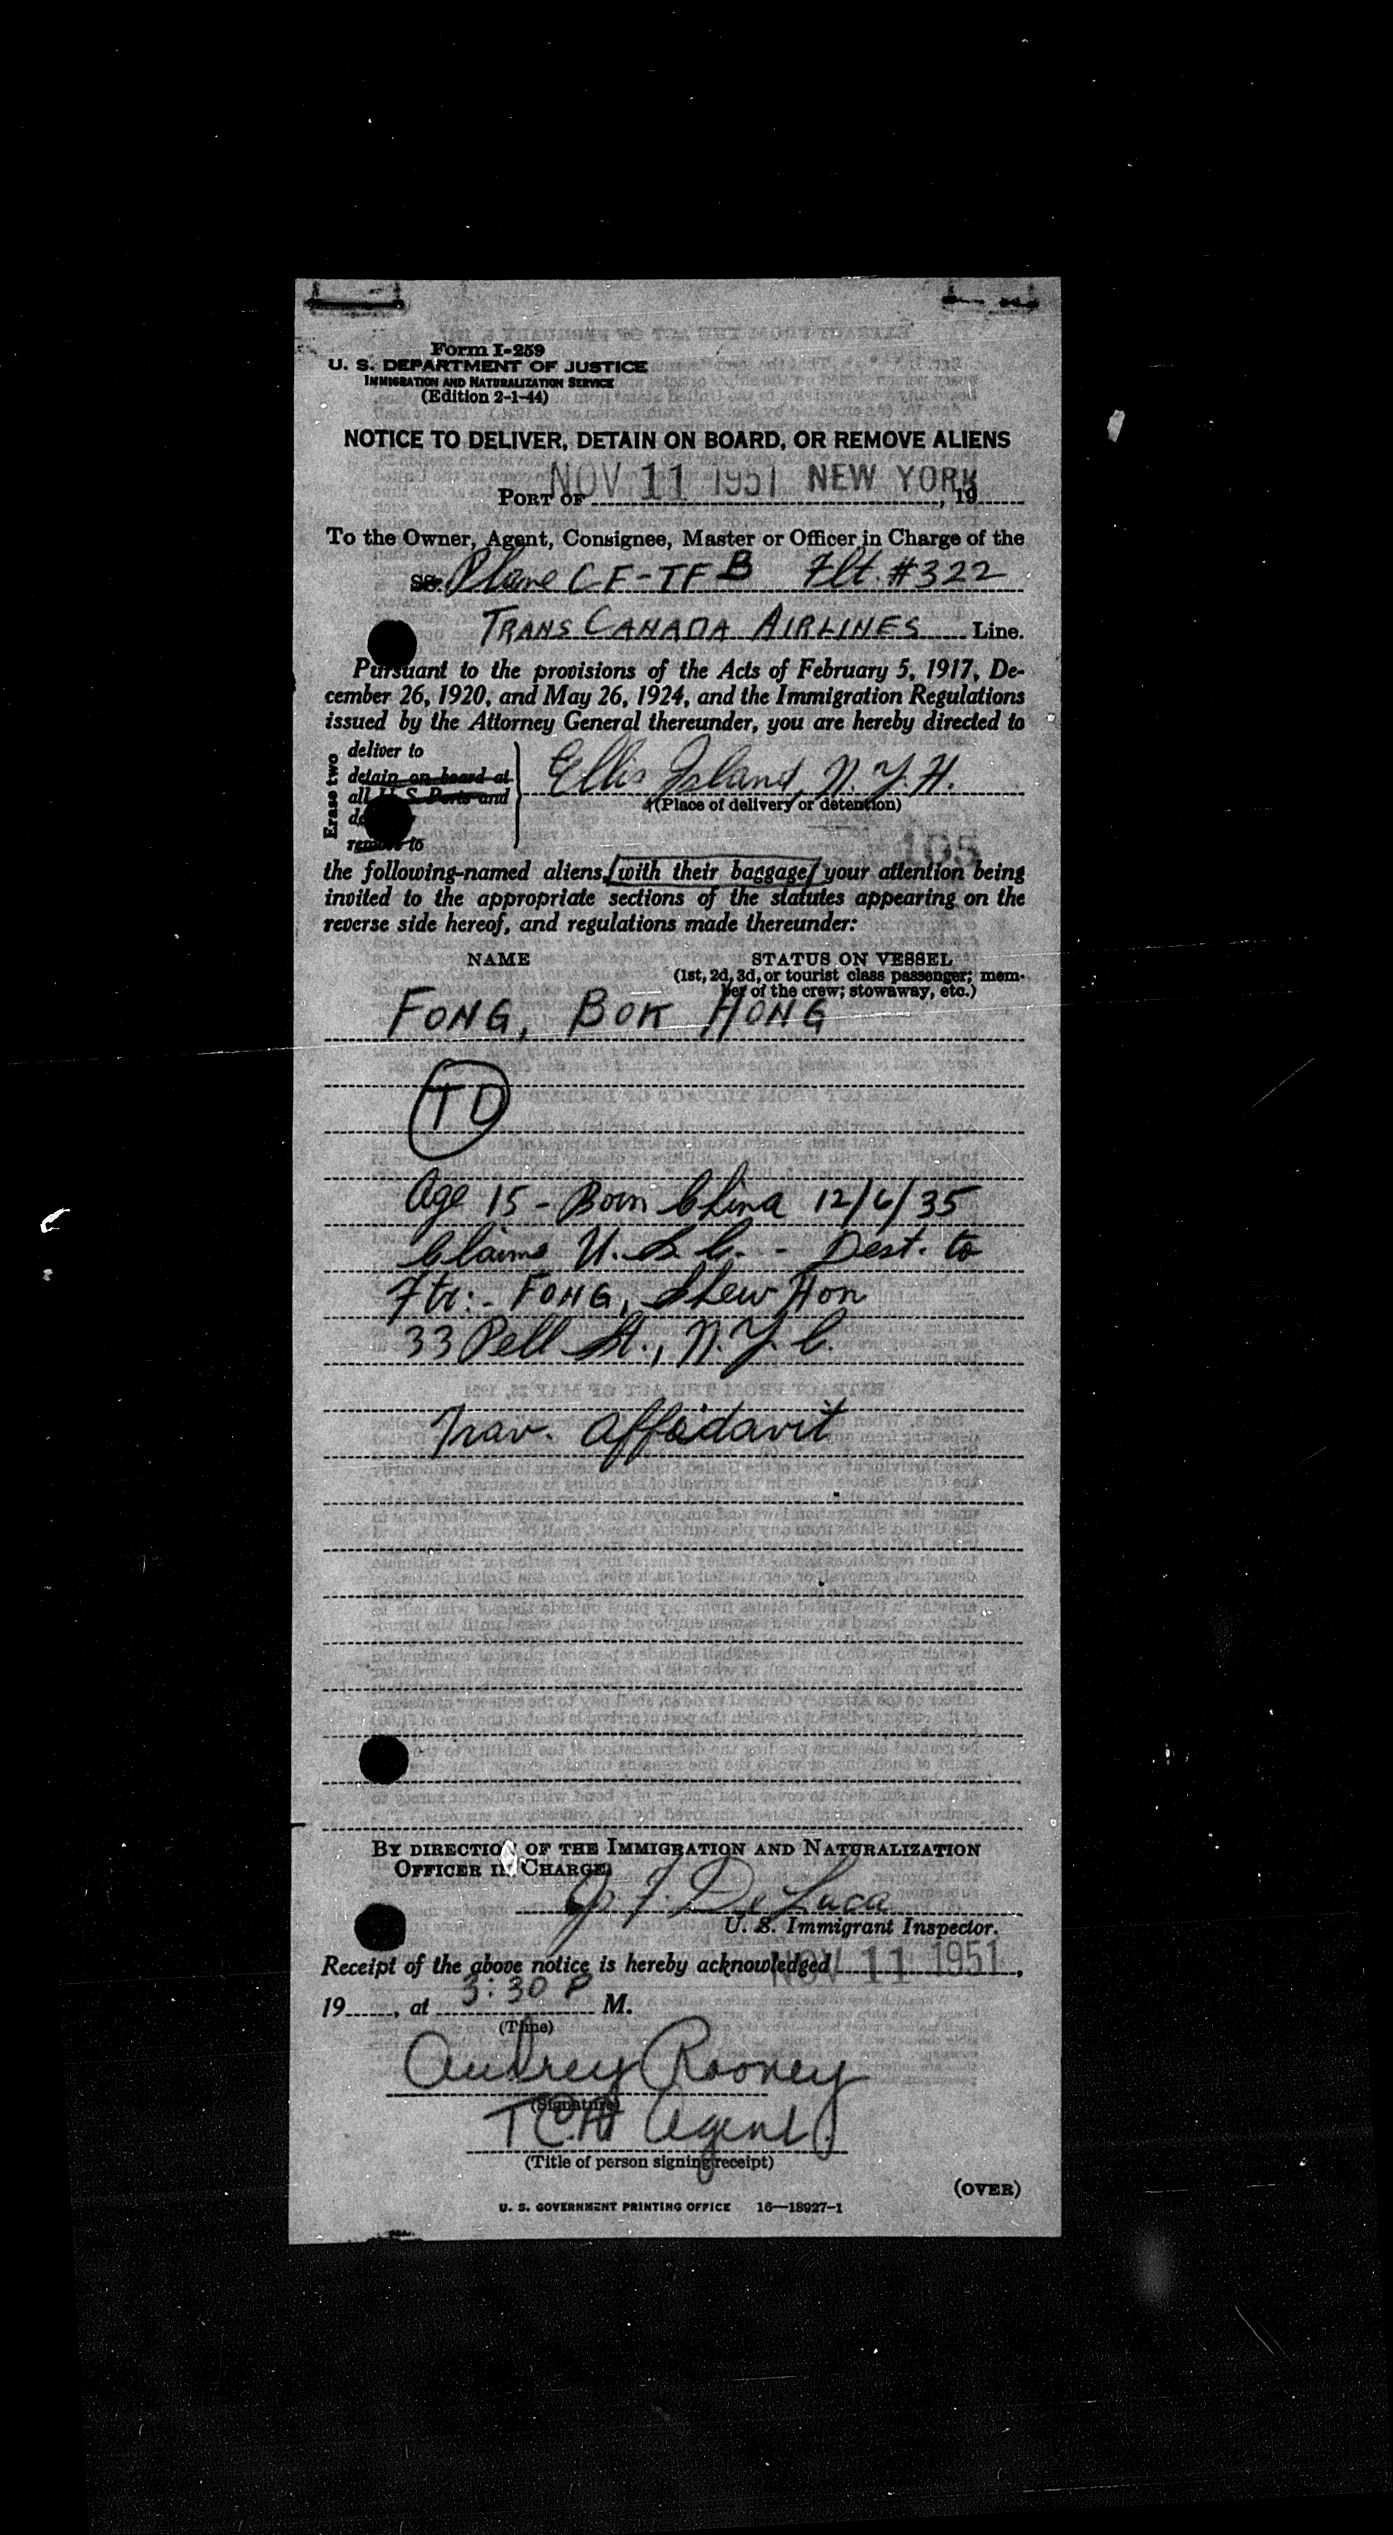 Form I-259
U. S. DEPARTMENT OF JUSTICE
IMMIGRATION AND NATURALIZATION SERVICE
(Edition 2-1-44)
NOTICE TO DELIVER, DETAIN ON BOARD, OR REMOVE ALIENS
NOV 11 1951 NEW YORK
PORT OF , 19
To the Owner, Agent, Consignee, Master or Officer in Charge of the
SS. Plane CF-TFB Flt. #322
TRANS CANADA AIRLINES Line.
Pursuant to the provisions of the Acts of February 5, 1917, De-
cember 26, 1920, and May 26, 1924, and the Immigration Regulations
issued by the Attorney General thereunder, you are hereby directed to
Erase two
deliver to
detain on board at
all U. S. Ports and
remove to
Ellis Island, N.Y.H.
(Place of delivery or detention)
105
the following-named aliens, with their baggage, your attention being
invited to the appropriate sections of the statutes appearing on the
reverse side hereof, and regulations made thereunder:
NAME STATUS ON VESSEL
(1st, 2d, 3d, or tourist class passenger; mem-
ber of the crew; stowaway, etc.)
FONG, BOK HONG
TD
Age 15 - Born China 12/6/35
Claims U.S.C. - Dest. to
Ftr:- FONG, Shew Hon
33 Pell St., N.Y.C.
Trav. Affidavit
BY DIRECTION OF THE IMMIGRATION AND NATURALIZATION
OFFICER IN CHARGE,
J. F. De Luca
U. S. Immigrant Inspector.
Receipt of the above notice is hereby acknowledged NOV 11 1951,
19, at 3:30 P M.
(Time)
Audrey Rooney
(Signature)
TCA Agent
(Title of person signing receipt)
(OVER)
U. S. GOVERNMENT PRINTING OFFICE 16—18927-1